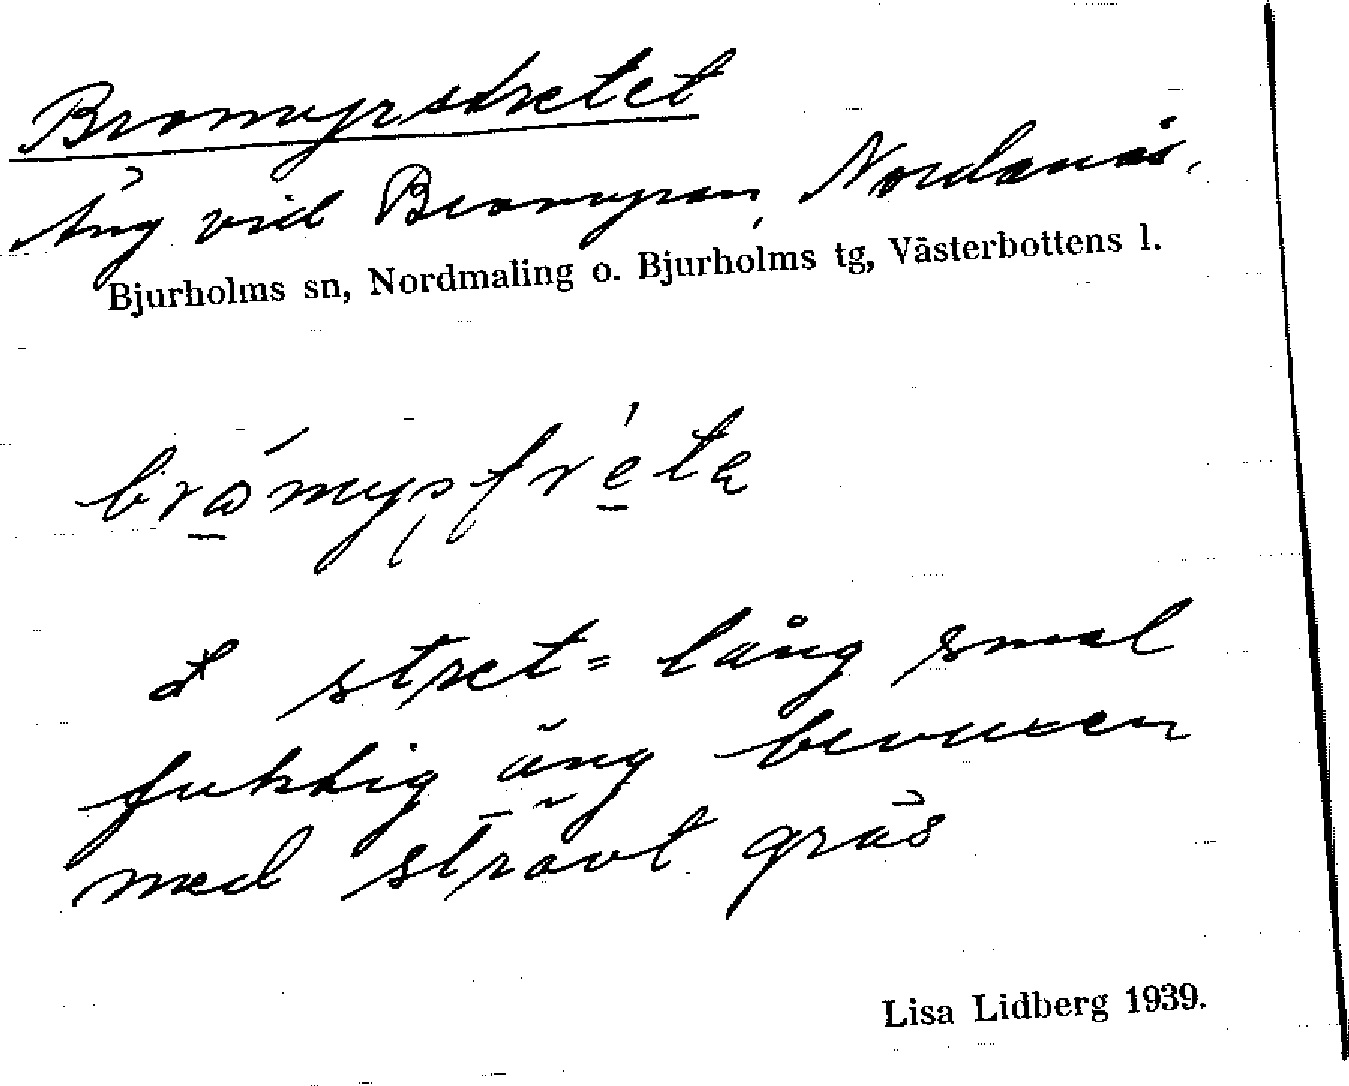 Bromyrstretet
Äng vid Bromyran, Nordanås.
Bjurholms sn, Nordmaling o. Bjurholms tg, Västerbottens l.
stret = lång smal
fuktig äng bevuxen
med strävt gräs
Lisa Lidberg 1939.